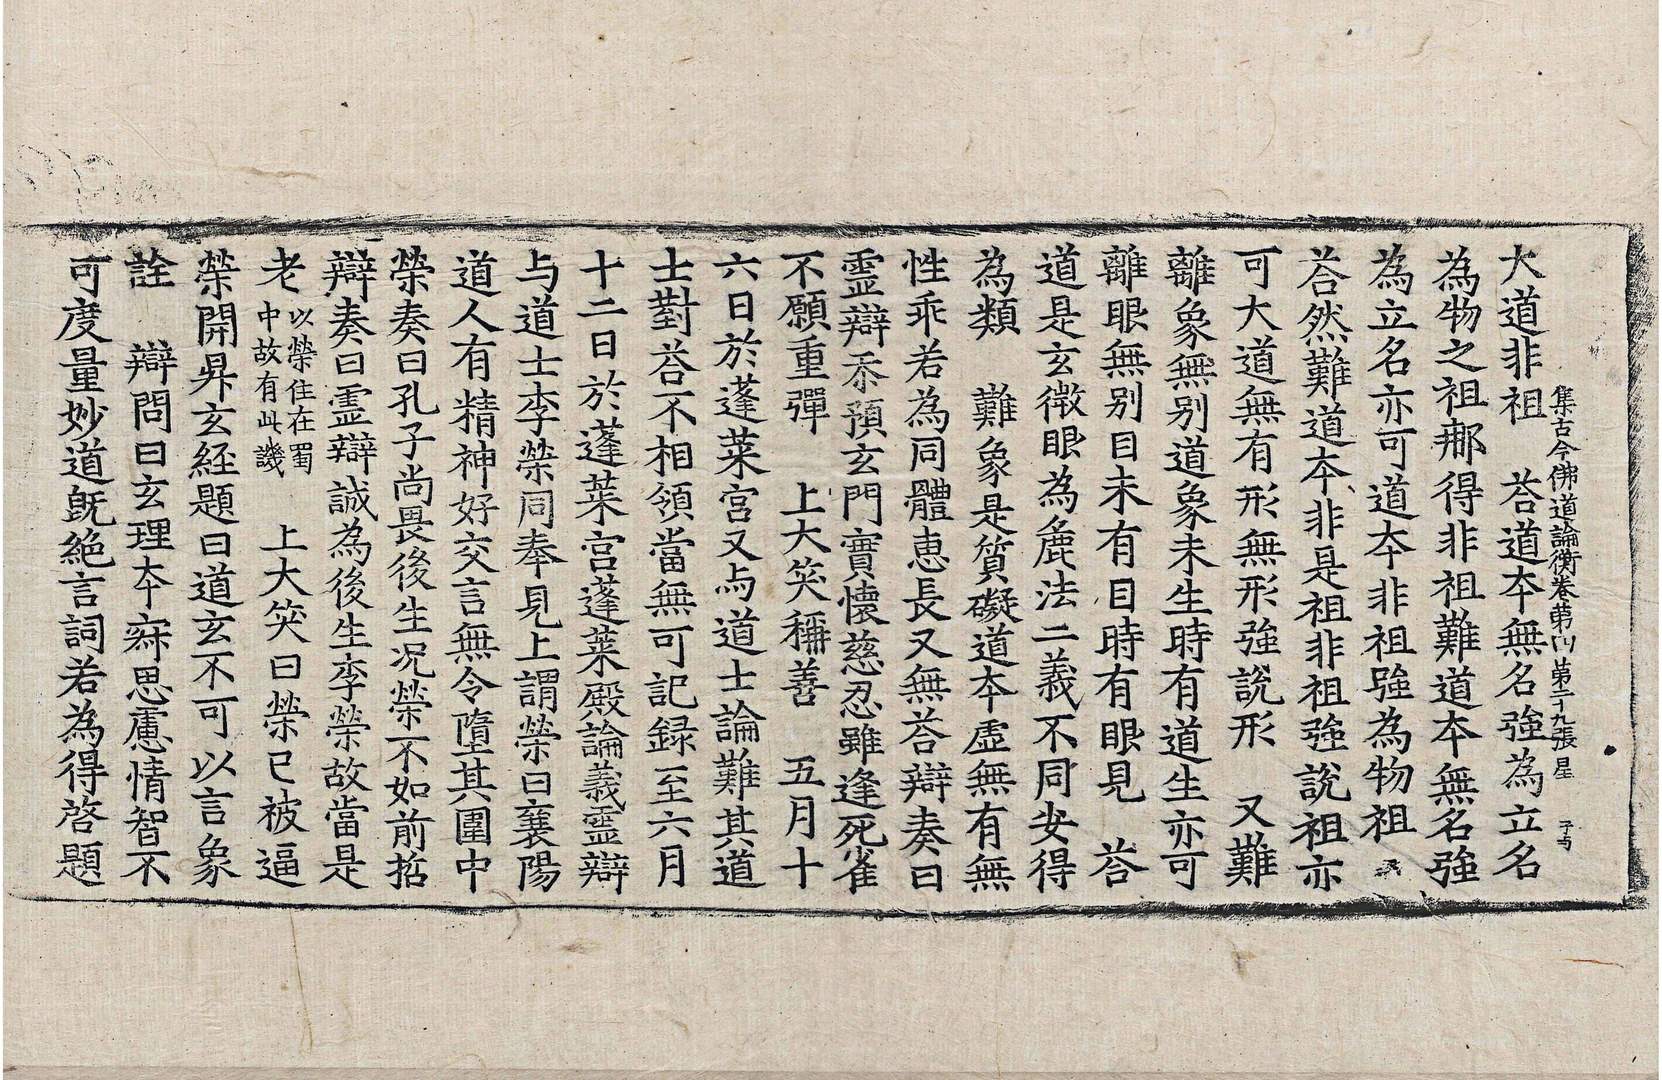 集古今佛道論衡卷第四 第二十九張 星
大道非祖 荅道本無名強為立名
為物之祖那得非祖難道本無名強
為立名亦可道本非祖強為物祖
荅然難道本非是祖非祖強說祖亦
可大道無有形無形強說形 又難
離象無別道象未生時有道生亦可
離眼無別目未有目時有眼見 荅
道是玄微眼為麁法二義不同安得
為類 難象是質礙道本虛無有無
性乖若為同體惠長又無荅辯奏曰
靈辯忝預玄門實懷慈忍雖逢死雀
不願重彈 上大笑稱善 五月十
六日於蓬萊宮又与道士論難其道
士對荅不相領當無可記録至六月
十二日於蓬萊宮蓬萊殿論義靈辯
与道士李榮同奉見上謂榮曰襄陽
道人有精神好交言無令墮其圍中
榮奏曰孔子尚畏後生况榮不如前括
辯奏曰靈辯誠為後生李榮故當是
老 以榮住在蜀中故有此譏 上大笑曰榮已被逼
榮開昇玄經題曰道玄不可以言象
詮 辯問曰玄理本寂思慮情智不
可度量妙道旣絕言詞若為得啓題